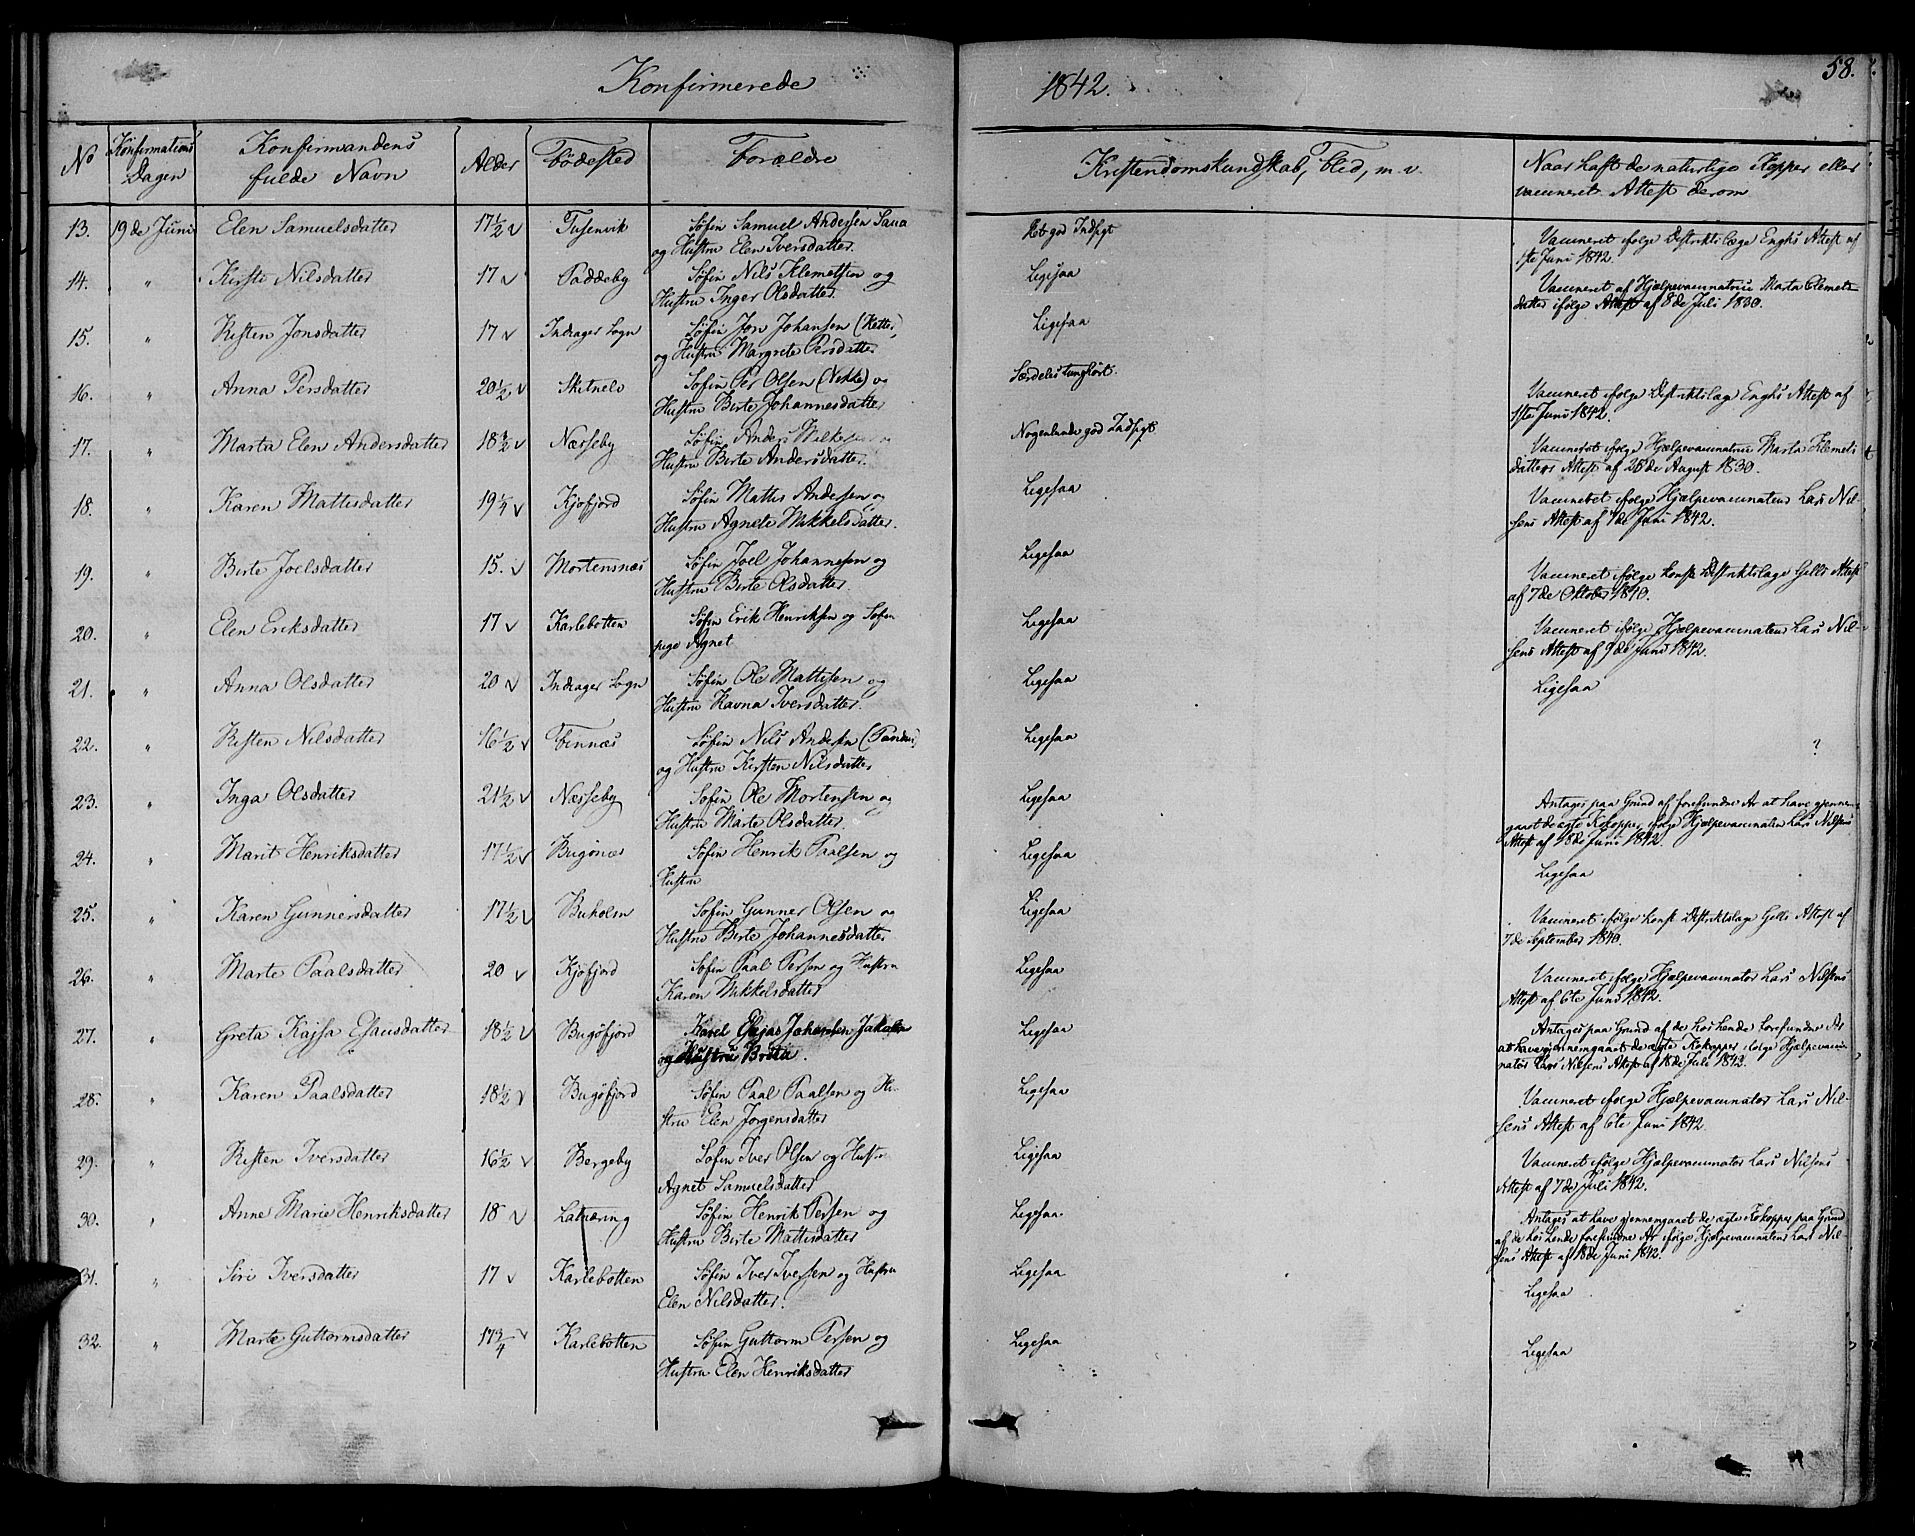 Konfirmerede 1842. 58.
No Konfirmations Dagen Konfirmandens fulde Navn Alder Fødested Forældre Kristendomskundskab, Flid, m.v. Naar haft de naturlige Kopper eller vaccineret. Attest derom
13. 19de Juni Elen Samuelsdatter 17 1/2 Søfin Samuel Andersen og Hustru Elen Iversdatter. Ret god Indsigt Vaccineret ifølge Destriktslæge Enghs Attest af 1ste Juni 1842.
14. " Kirste Nilsdatter 17 Paddeby Søfin Nils Klemetsen og Hustru Inger Olsdatter. Ligesaa Vaccineret af Hjælpevaccinatrice Marta Clemets datter ifølge Attest af 8de Juli 1830.
15. " Kisten Jonsdatter 17 Indrager Sogn Søfin Jon Johansen og Hustru Margrete Persdatter Ligesaa
16. " Anna Persdatter 20 1/2 Skitnelv Søfin Per Olsen og Hustru Birte Johannesdatter Særdeles tunghørt. Vaccineret ifølge Destriktslæge Enghs Attest af 1ste Juni 1842.
17. " Marta Elen Andersdatter 18 1/2 Næsseby Søfin Anders og Hustru Birte Andersdatter. Nogenlunde god Indsigt Vaccineret ifølge Hjælpevaccinatrice Marta Klemets datters Attest af 25de August 1830.
18. " Karen Mattisdatter 19 Kjøfjord Søfin Mattis Andersen og Hustru Agnete Mikkelsdatter. Ligesaa Vaccineret ifølge Hjælpevaccinatens Lars Nilsens Attest af 7de Juni 1842.
19. " Birte Joelsdatter 15. Mortensnæs Søfin Joel Johannesen og Hustru Birte Olsdatter Ligesaa Vaccineret ifølge konst. Destriktslæge Attest af 7de Oktober 1840.
20. " Elen Eriksdatter 17 Karlebotten Søfin Erik Henriksen og Søfin pige Agnet Ligesaa Vaccineret ifølge Hjælpevaccinatens Lars Nilsens Attest af 7de Juni 1842.
21. " Anna Olsdatter 20 Indrager Sogn Søfin Ole Mattisen og Hustru Ravna Iversdatter. Ligesaa Ligesaa
22. " Kisten Nilsdatter 16 1/2 Finnæs Søfin Nils Andersen og Hustru Kirsten Nilsdatter Ligesaa ?
23. " Inga Olsdatter 21 1/2 Næsseby Søfin Ole Mortensen og Hustru Marte Olsdatter. Ligesaa Antages paa Grund af forefundne Ar at have gjennemgaaet de ægte Kokopper ifølge Hjælpevaccinaten Lars Nilsens Attest af 18de Juni 1842.
24. " Marit Henriksdatter 17 1/2 Bugønæs Søfin Henrik Paalsen og Hustru Ligesaa Ligesaa
25. " Karen Gunnersdatter 17 1/2 Buholm Søfin Gunner Olsen og Hustru Birte Johannesdatter Ligesaa Vaccineret ifølge konst Destriktslæge Attest af 7de September 1840.
26. " Marte Paalsdatter 20 Kjøfjord Søfin Paal Persen og Hustru Karen Mikkelsdatter Ligesaa Vaccineret ifølge Hjælpevaccinator Lars Nilsens Attest af 6te Juni 1842.
27. " Greta Kajsa Esausdatter 18 1/2 Bugøfjord og Hustru Brita. Ligesaa Antages paa Grund af de hos hende forefundne Ar at have gjennemgaaet de ægte Kokopper ifølge Hjælpevaccinator Lars Nilsens Attest af 18de Juli 1842.
28. " Karen Paalsdatter 18 1/2 Bugøfjord Søfin Paal Paalsen og Hustru Elen Jørgensdatter Ligesaa Vaccineret ifølge Hjælpevaccinator Lars Nilsens Attest af 6te Juni 1842.
29. " Kisten Iversdatter 16 1/2 Bergeby Søfin Iver Olsen og Hustru Agnet Samuelsdatter Ligesaa Vaccineret ifølge Hjælpevaccinator Lars Nilsens Attest af 7de Juli 1842.
30. " Anne Marie Henriksdatter 18 Søfin Henrik Persen og Hustru Birte Mattisdatter Ligesaa Antages at have gjennemgaaet de ægte Kokopper paa Grund af de hos hende forefundne Ar ifølge Hjælpevaccinatens Lars Nilsens Attest af 18de Juni 1842.
31. " Siri Iversdatter 17 Karlebotten Søfin Iver Iversen og Hustru Elen Nilsdatter. Ligesaa Ligesaa
32. " Marte Guttormsdatter 17 3/4 Karlebotten Søfin Guttorm Persen og Hustru Elen Henriksdatter Ligesaa Ligesaa